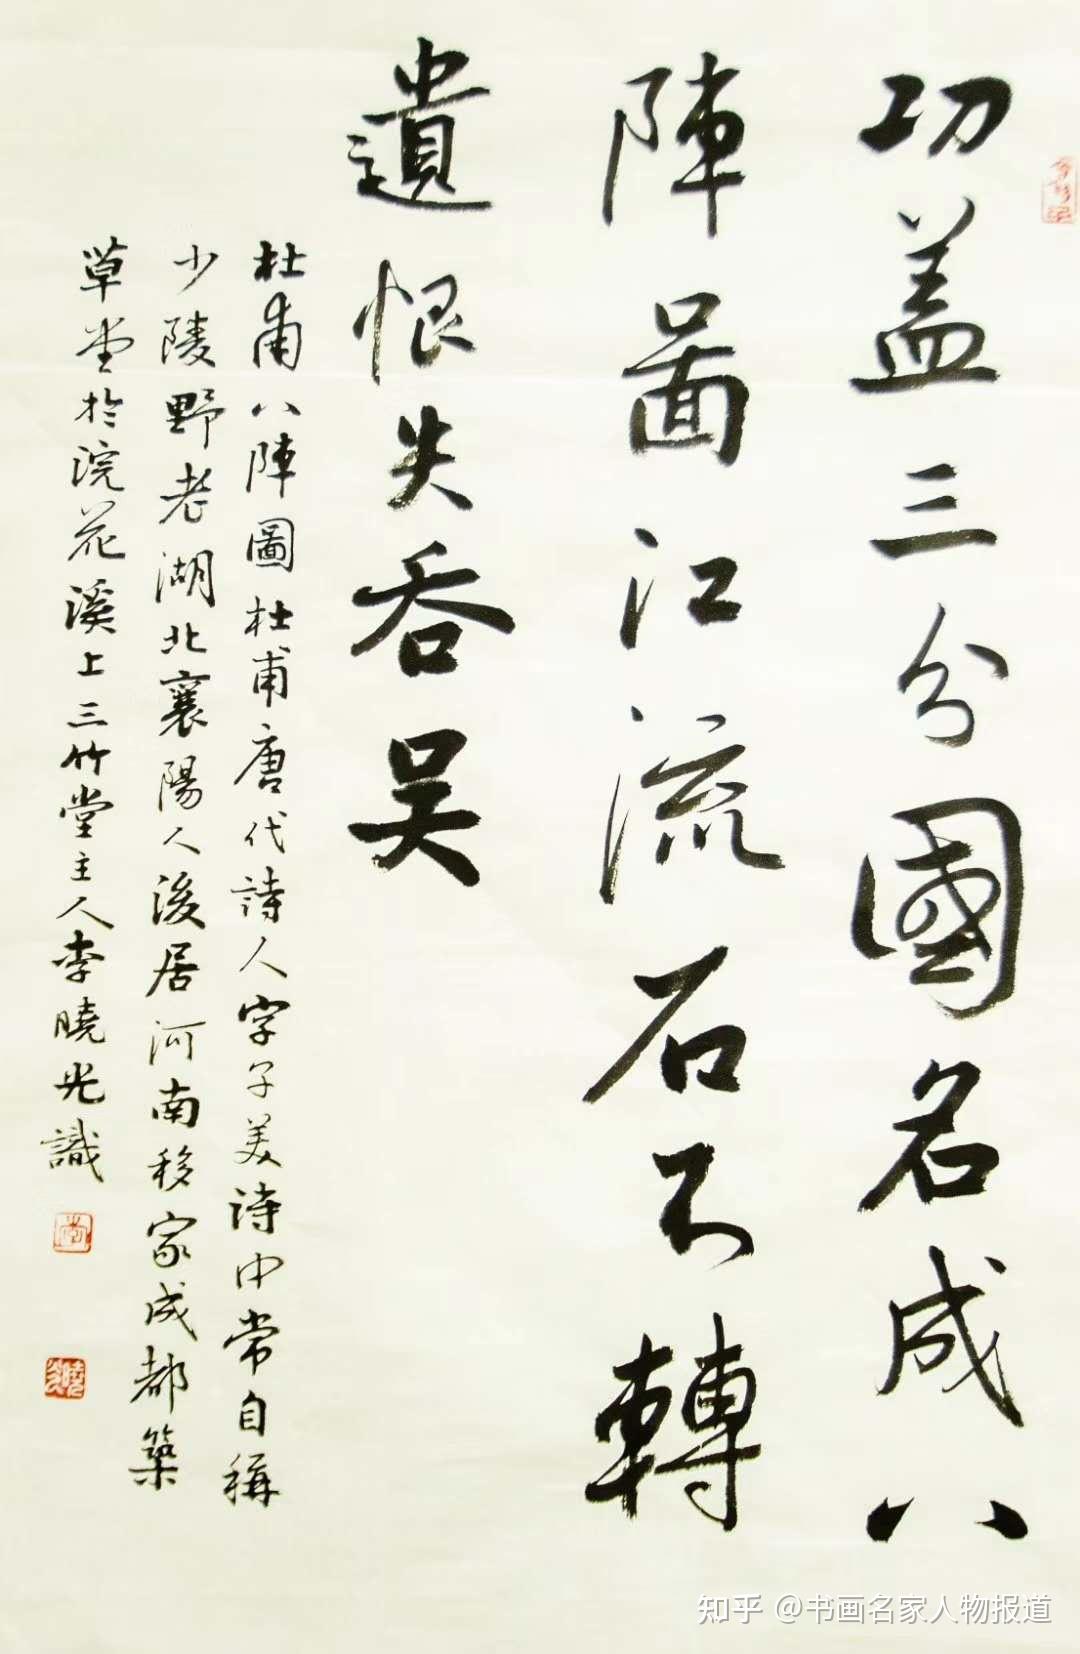 功盖三分國名成八
陣圖江流石不轉
遺恨失吞吴
杜甫八陣圖杜甫唐代詩人字子美詩中常自稱
少陵野老湖北襄陽人後居河南移家成都築
草堂於浣花溪上三竹堂主人李曉光識
知乎 @书画名家人物报道